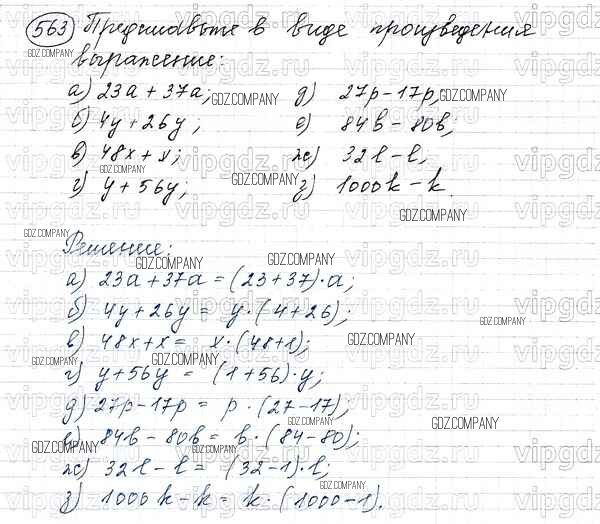 563 Представьте в виде произведения
выражение:
а) 23a + 37a; д) 27p - 17p,
б) 4y + 26y; е) 84b - 80b;
в) 48x + x; ж) 32l - l,
г) y + 56y; з) 1000k - k.
Решение:
а) 23a + 37a = (23 + 37) · a;
б) 4y + 26y = y · (4 + 26);
в) 48x + x = x · (48 + 1);
г) y + 56y = (1 + 56) · y;
д) 27p - 17p = p · (27 - 17),
е) 84b - 80b = b · (84 - 80);
ж) 32l - l = (32 - 1) · l;
з) 1000k - k = k · (1000 - 1).
GDZ.COMPANY
vipgdz.ru